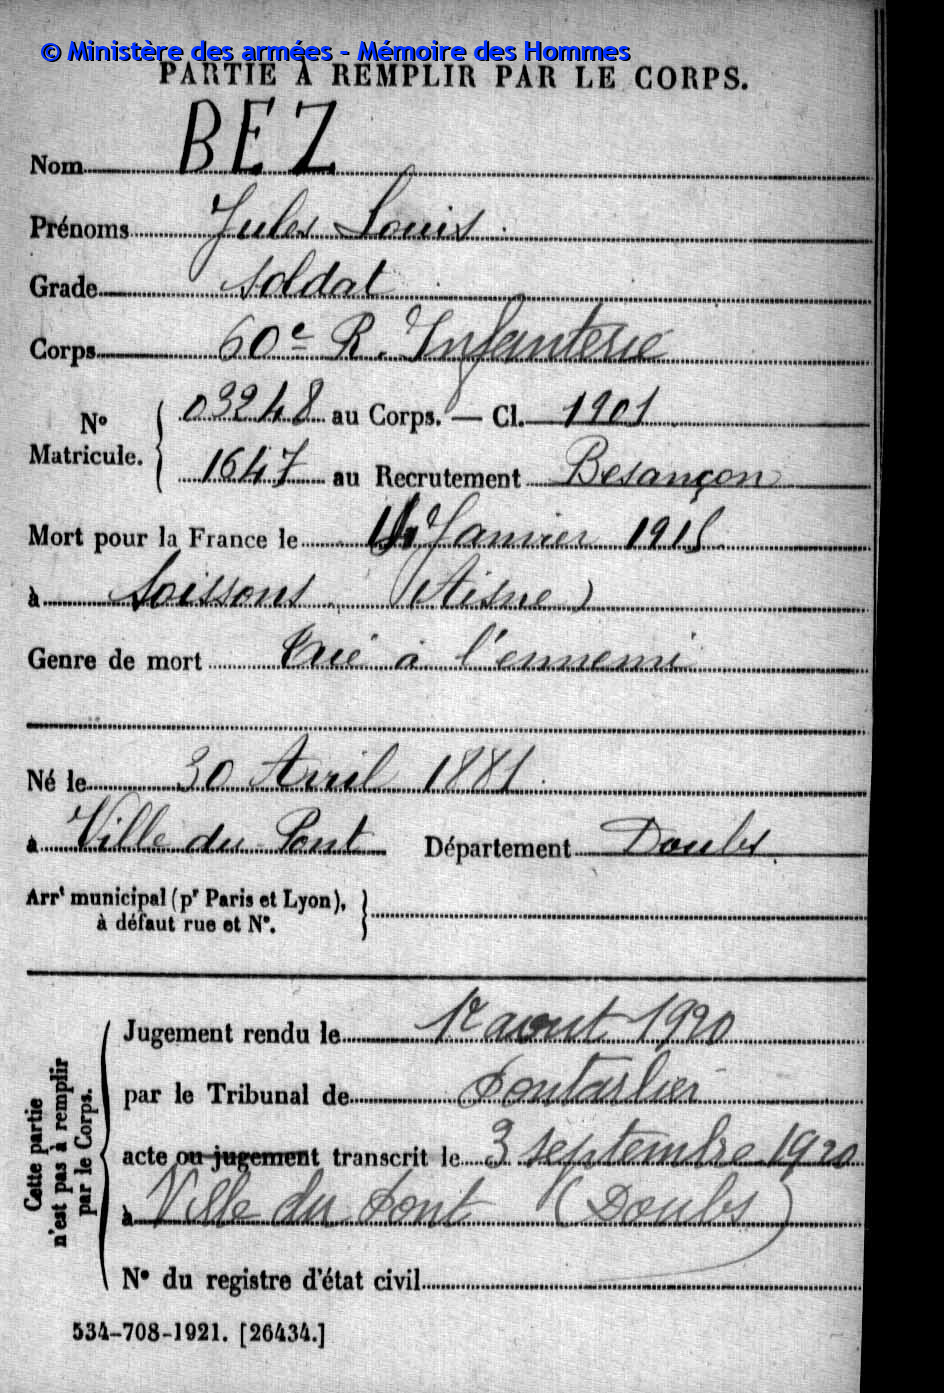 © Ministère des armées - Mémoire des Hommes
PARTIE À REMPLIR PAR LE CORPS.
Nom BEZ
Prénoms Jules Louis
Grade soldat
Corps 60e R. Infanterie
No Matricule. { 03248 au Corps. — Cl. 1901
1647 au Recrutement Besançon
Mort pour la France le 14 Janvier 1915
à Soissons (Aisne)
Genre de mort Tué à l'ennemi
Né le 30 Avril 1881
à Ville du Pont Département Doubs
Arrt municipal (pr Paris et Lyon), à défaut rue et No. }
Cette partie n'est pas à remplir par le Corps.
Jugement rendu le 1r aout 1920
par le Tribunal de Pontarlier
acte ou jugement transcrit le 3 septembre 1920
à Ville du Pont (Doubs)
No du registre d'état civil
534-708-1921. [26434.]